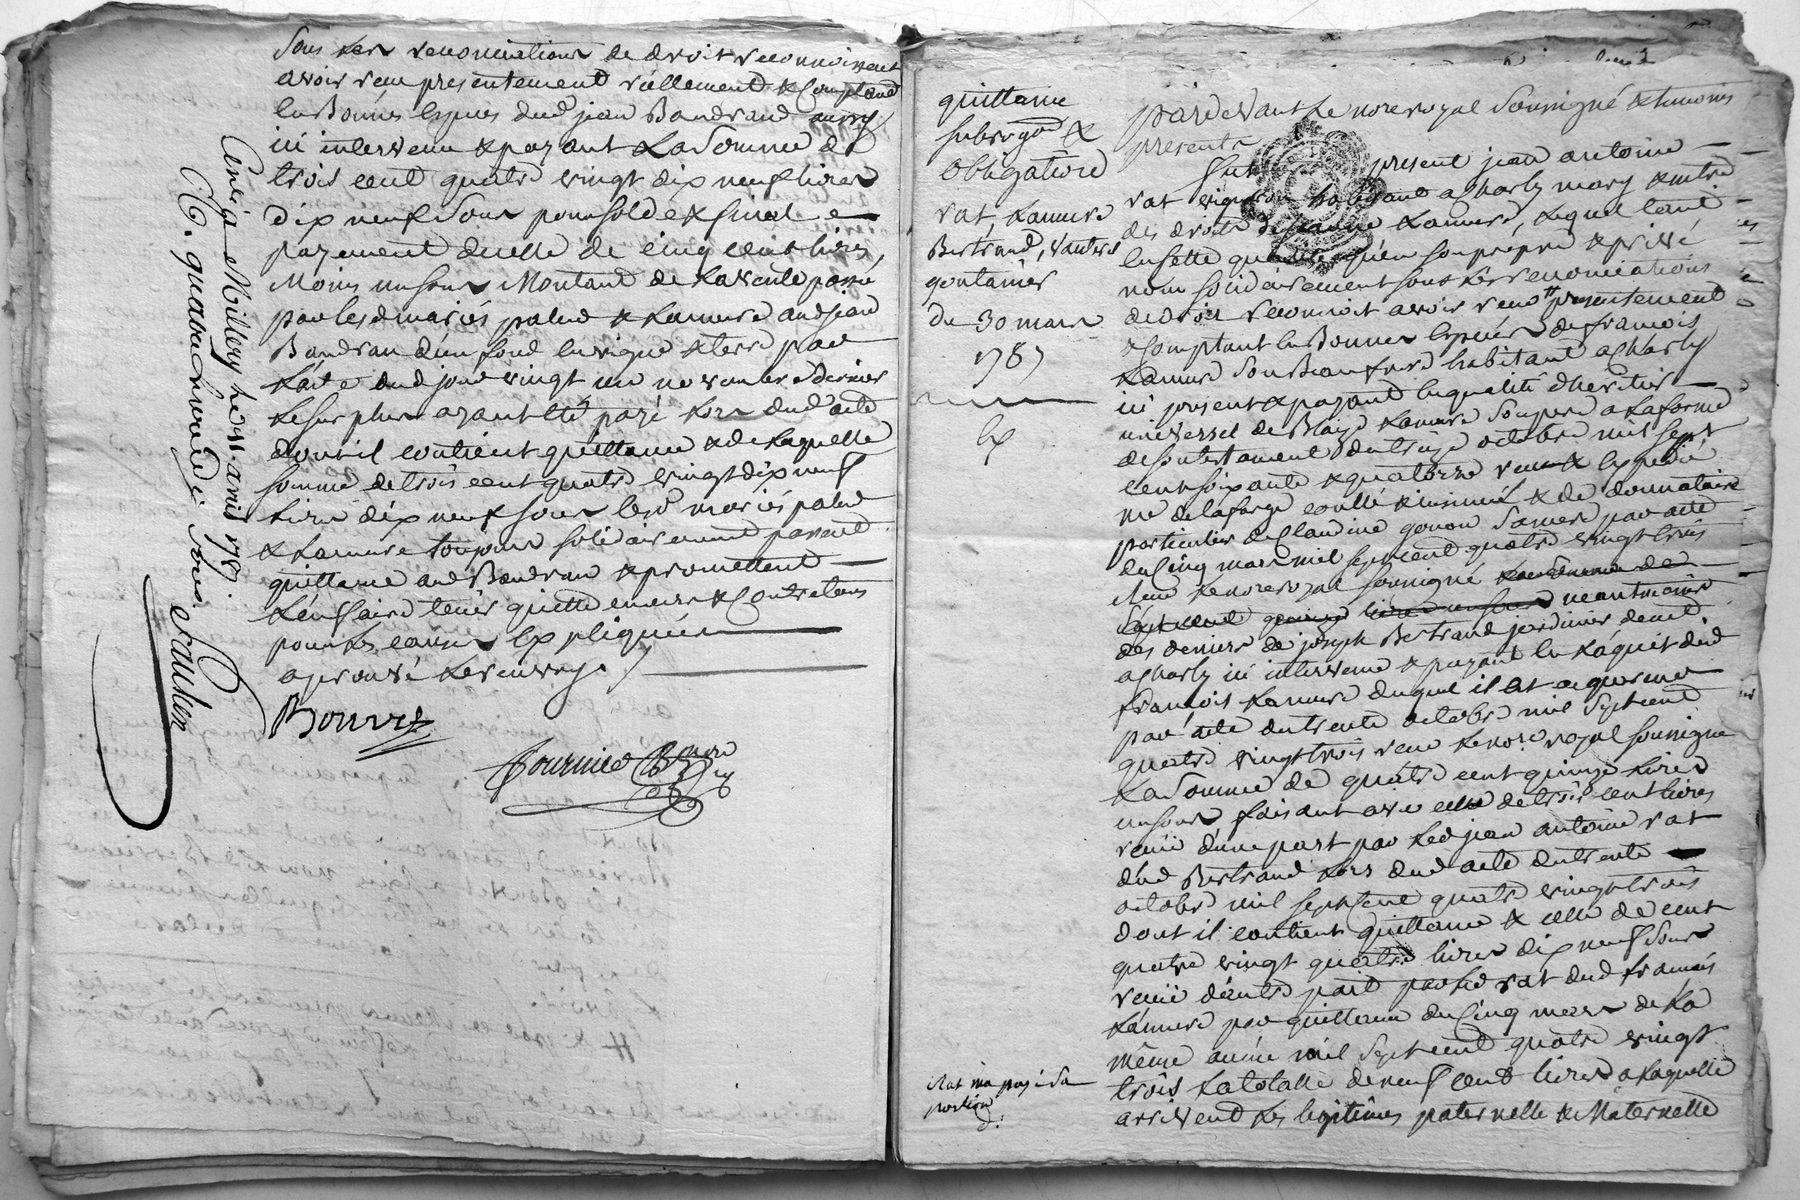 sous les renonciations de droit reconnoissent
avoir reçu présentement réellement & comptant
en Bonnes Espèces dud jean Bandrand aussy
ici intervenu & payant La Somme de
trois cent quatre vingt dix neuf livres
dix neuf Sous pour solde & final
payement de celle de cinq cent livres
Moins un sous Montant de La vente passé
par lesd mariés & Lamure aud jean
Bandran d'un fond en vigne & terre par
L'acte dud jour vingt un novembre dernier
Le surplus ayant été payé Lors dud acte
dont il contient quittance & de Laquelle
somme de trois cent quatre vingt dix neuf
livres dix neuf sous lesd mariés
& Lamure toujours solidairement passent
quittance aud Bandran & promettent
L'en faire tenir quitte envers & Contre tous
pour les causes Expliquées
aprouvé Le renvoy.
Bouvr
Fournier
Cné à Millery le 11 avril 1787.
R. quatre livres dix sous
quittance
subrogaon &
obligation
rat, Lamure
Bertrand, & autres
gontanier
du 30 mars
1787
Ex
pardevant Le nore royal Soussigné & témoins
présents
fut présent jean antoine
rat vigneron habitant à Charly mary & mtre
des droits de Lamure, Lequel tant
en cette qualité qu'en son propre & privé
nom solidairement sous Les renonciations
de droit reconnoit avoir reçu présentement
& comptant en Bonnes Espèces de françois
Lamure son Beaufrere habitant à Charly
ici présent & payant en qualité d'héritier
universel de Blaise Lamure Son père à La forme
de son testament du treize octobre mil sept
cent soixante & quatorze reçu & Expédié
me delafarge contllé & insinué & de donnataire
particulier de Claudine gonon Sa mere par acte
du Cinq mars mil sept cent quatre vingt trois
reçu Le nore royal soussigné La Somme de
sept cent quinze livres un sous néantmoins
des deniers de joseph Bertrand jardinier demt
à Charly ici intervenu & payant en L'aquit dud
françois Lamure duquel il est acquereur
par acte du trente octobre mil sept cent
quatre vingt trois reçu Le nore royal soussigné
La Somme de quatre cent quinze Livres
un sous faisant avec celle de trois cent livres
reçue d'une part par Led jean antoine rat
dud Bertrand Lors dud acte du trente
octobre mil sept cent quatre vingt trois
dont il contient quittance & celle de cent
quatre vingt quatre livres dix neuf Sous
reçue d'autre part par led rat dud françois
Lamure par quittance du Cinq mars de La
même année mil sept cent quatre vingt
trois La totalle de neuf cent livres à Laquelle
arrivent Les légitimes paternelle & Maternelle
Rat ma payé Sa
portion